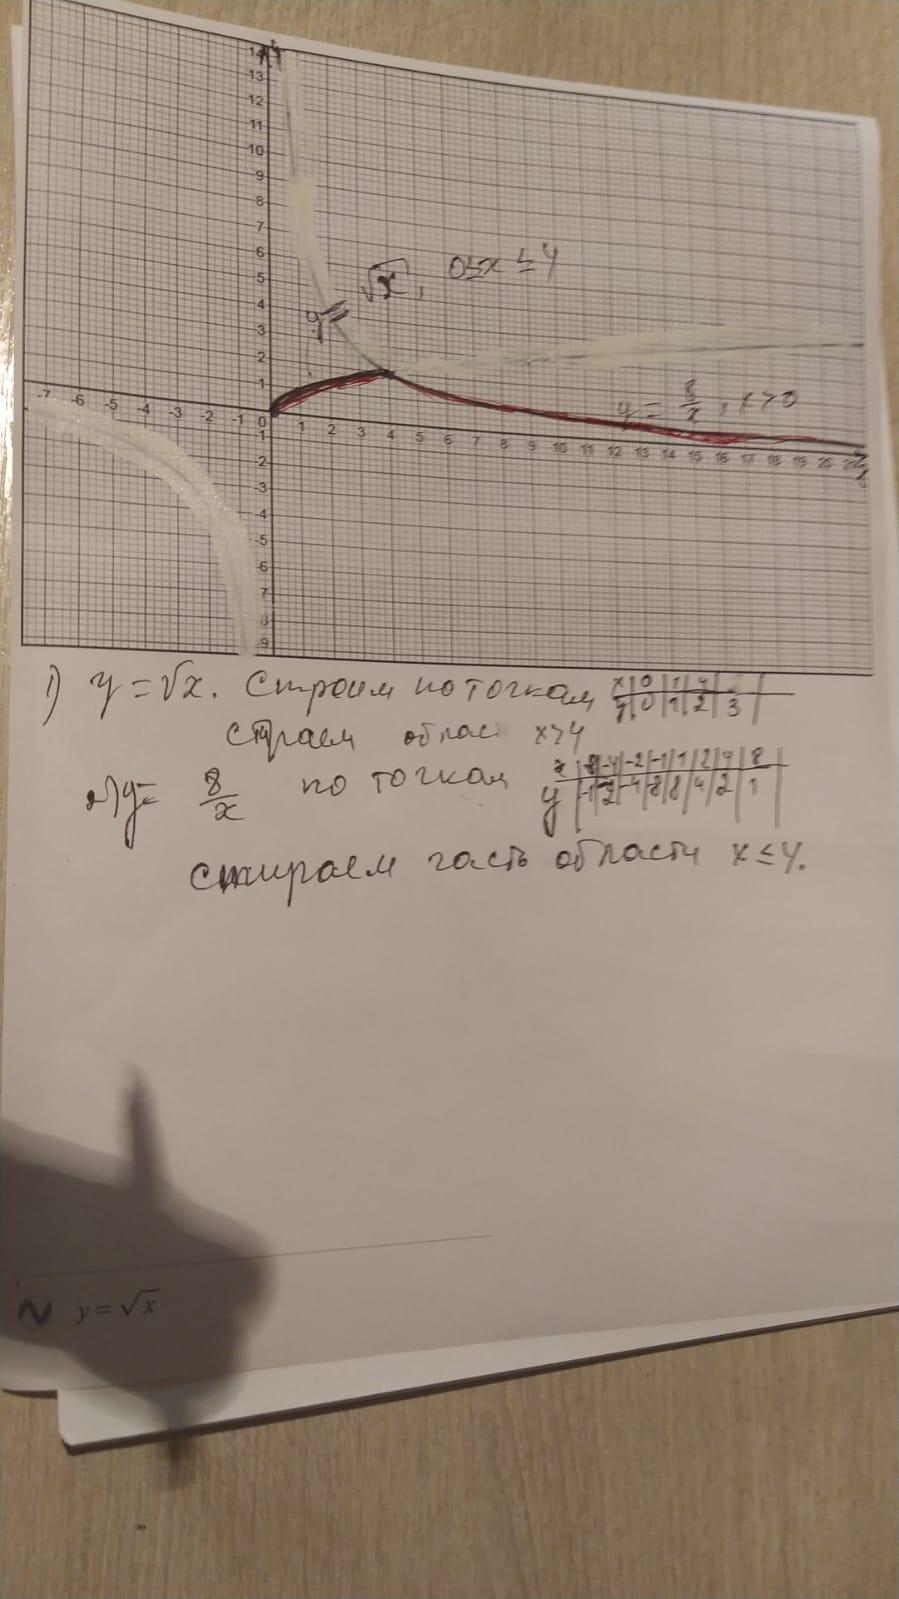 14
13
12
11
10
9
8
7
6
5
4
3
2
1
y = √x, 0≤x≤4
y = 8/x, x>0
-7 -6 -5 -4 -3 -2 -1 0 1 2 3 4 5 6 7 8 9 10 11 12 13 14 15 16 17 18 19 20
1
-2
-3
-4
-5
-6
7
8
-9
1) y = √x. Строим по точкам x | 0 | 1 | 4
y | 0 | 1 | 2 | 3
облас x>4
y = 8/x по точкам x | -8 | -4 | -2 | -1 | 1 | 2 | 4 | 8
y | -1 | -2 | -4 | -8 | 8 | 4 | 2 | 1
стираем часть области x ≤ 4.
y = √x